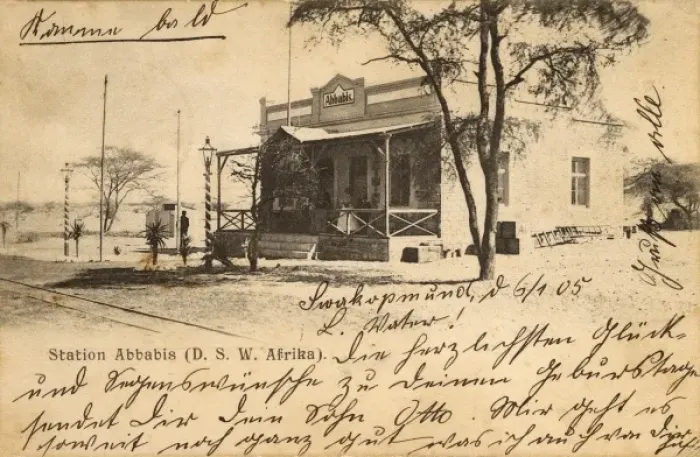 Komme bald
Abbabis
Swakopmund, d 6/1 05
L. Vater!
Station Abbabis (D. S. W. Afrika).
Die herzlichsten Glück-
und Segenswünsche zu Deinem Geburtstage
sendet Dir Dein Sohn Otto. Mir geht es
soweit noch ganz gut was ich auch von Dir